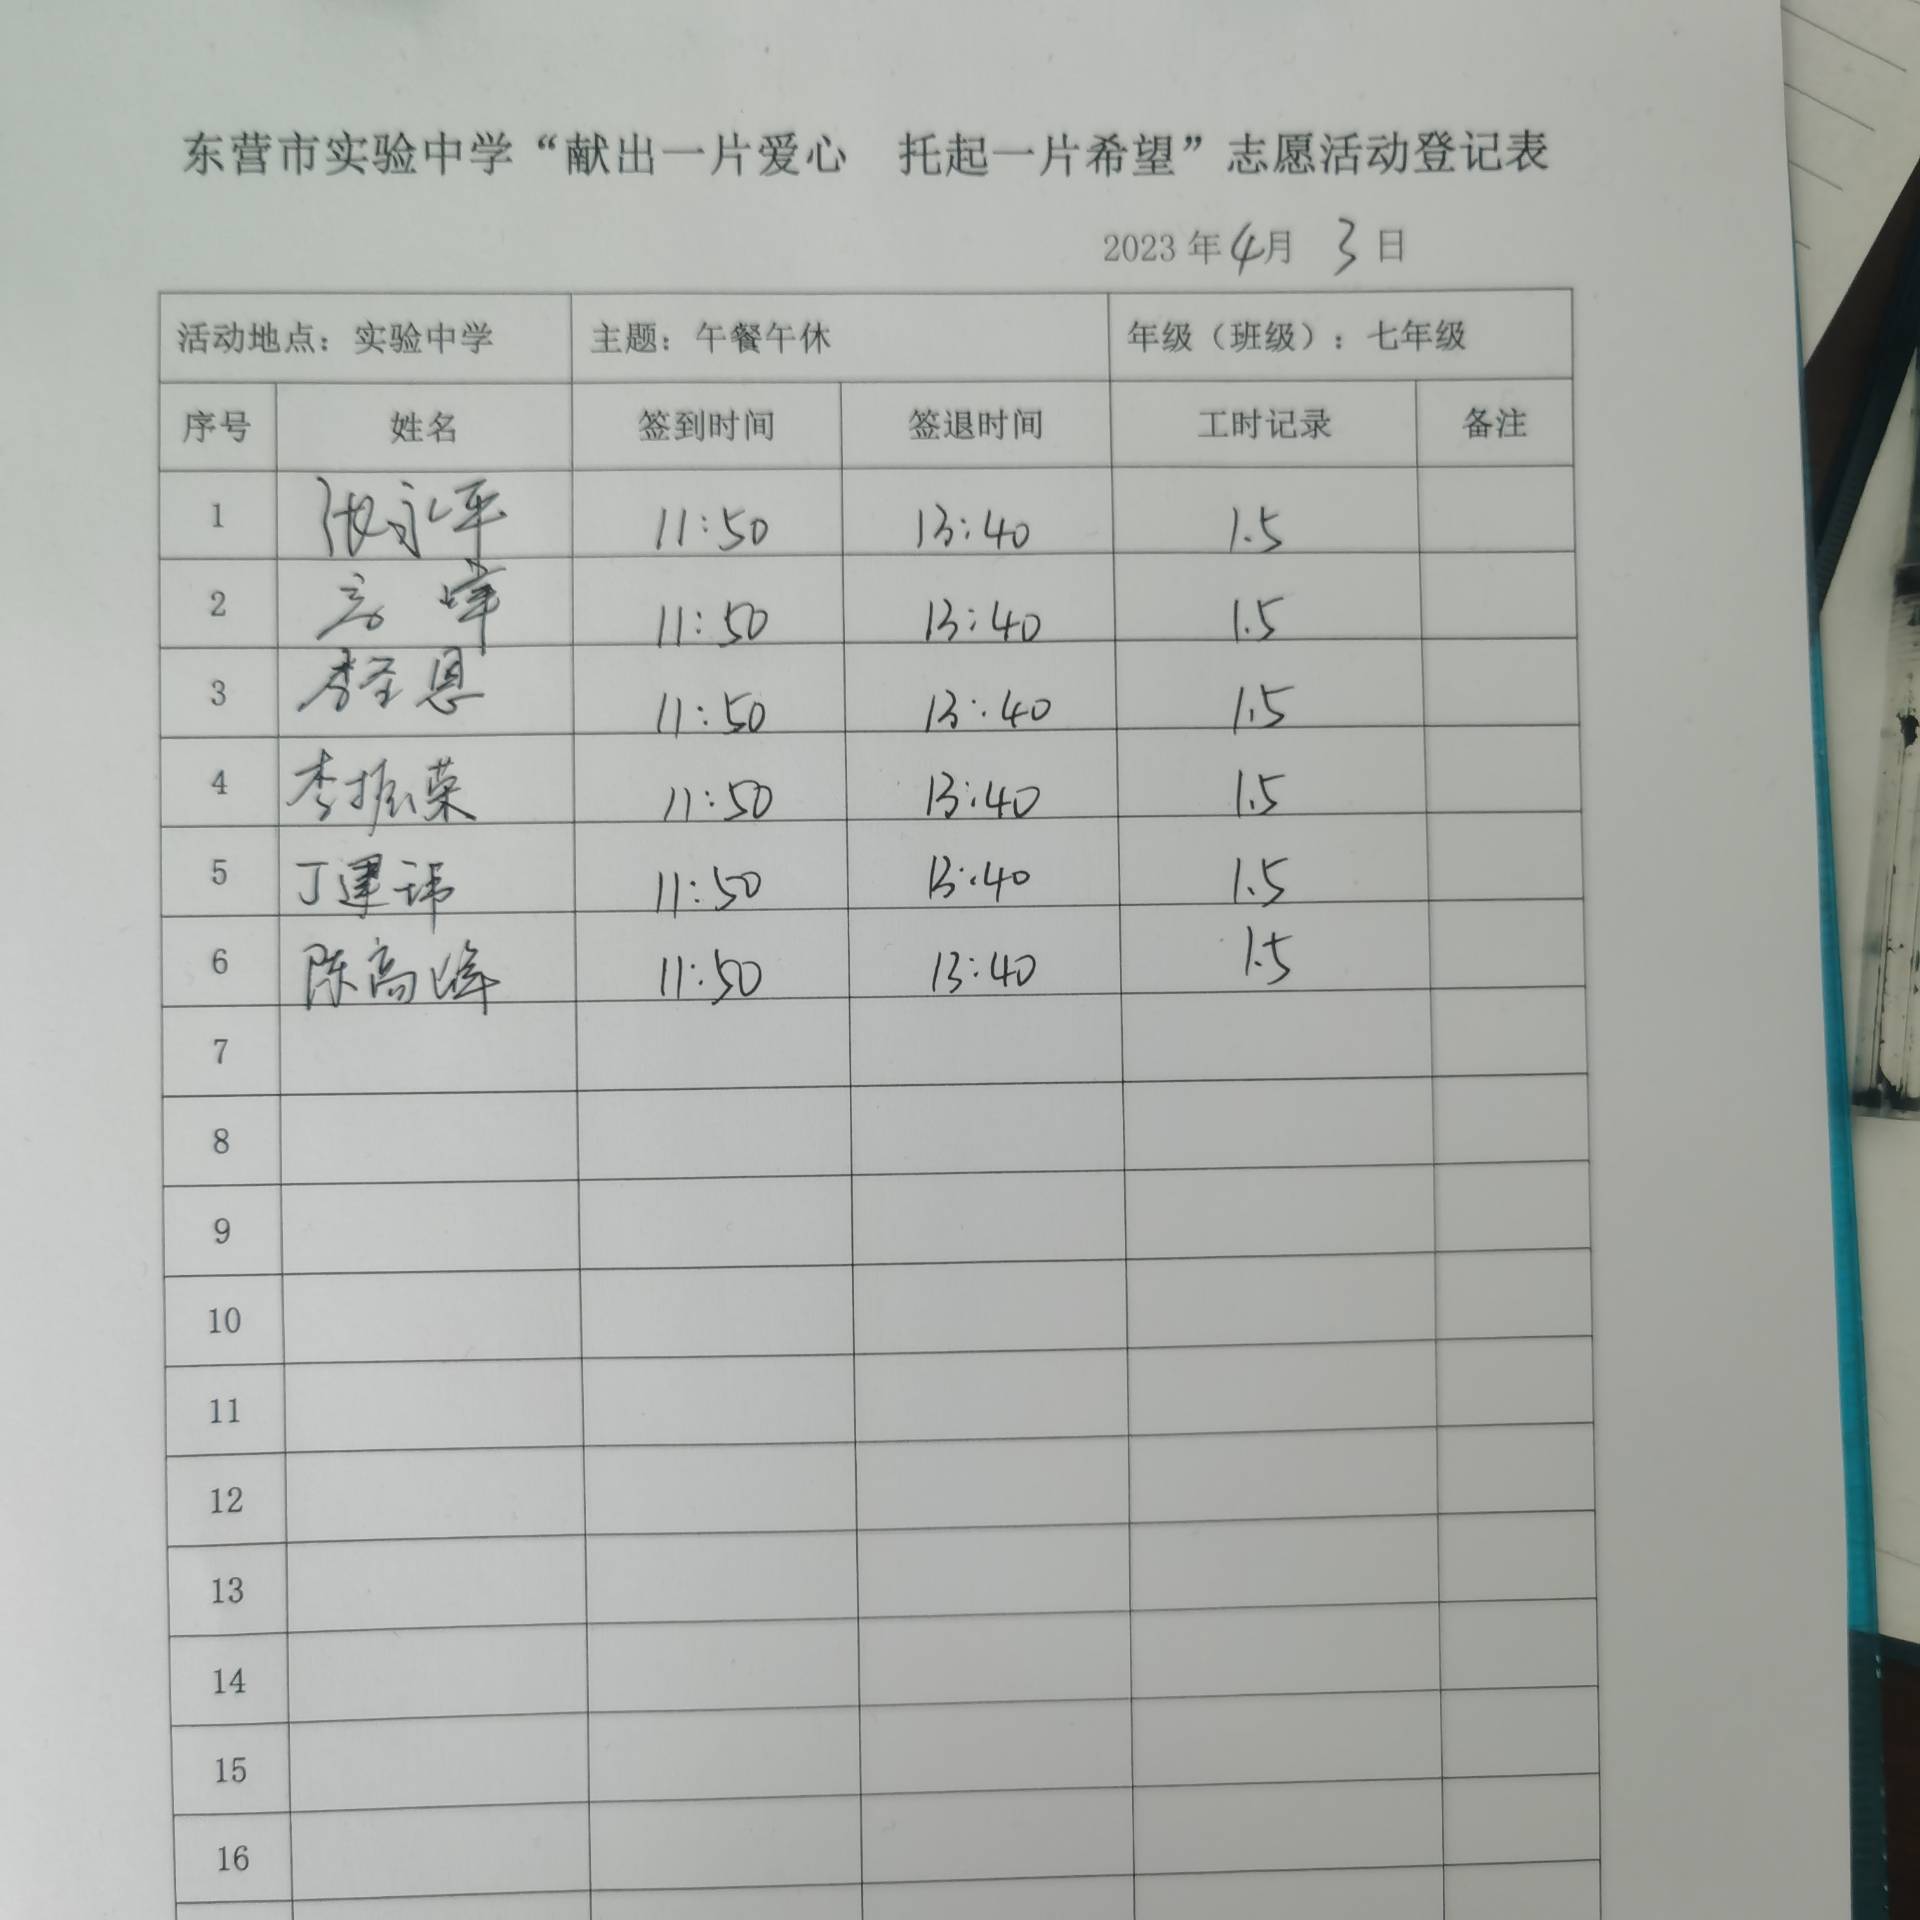 东营市实验中学“献出一片爱心 托起一片希望”志愿活动登记表
2023年4月 3日
活动地点：实验中学 主题：午餐午休 年级（班级）：七年级
序号 姓名 签到时间 签退时间 工时记录 备注
1 张永平 11:50 13:40 1.5
2 11:50 13:40 1.5
3 李圣恩 11:50 13:40 1.5
4 李振荣 11:50 13:40 1.5
5 丁建玮 11:50 13:40 1.5
6 陈高峰 11:50 13:40 1.5
7
8
9
10
11
12
13
14
15
16